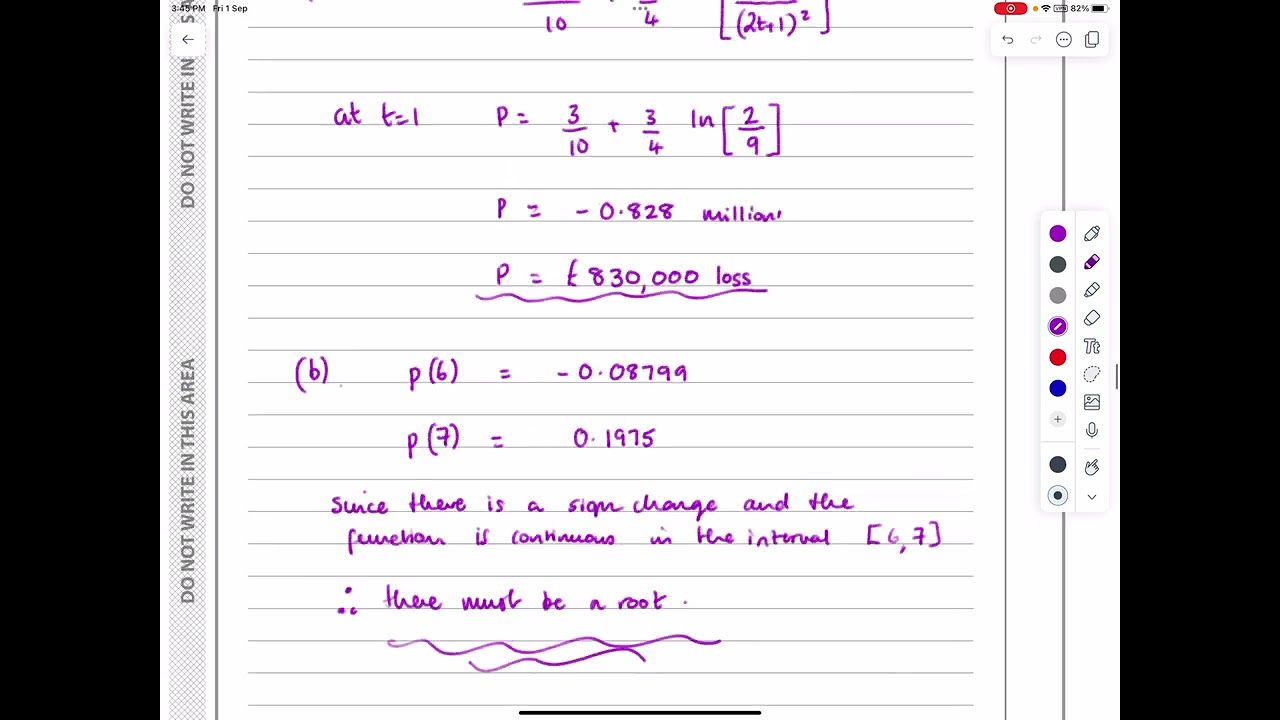 3:45 PM Fri 1 Sep
82%
10 4 [(2t+1)²]
at t=1 P = 3/10 + 3/4 ln [2/9]
P = - 0.828 million
P = £ 830,000 loss
(b) p(6) = - 0.08799
p(7) = 0.1975
Since there is a sign change and the
function is continuous in the interval [6,7]
∴ there must be a root.
DO NOT WRITE IN
DO NOT WRITE IN THIS AREA
Tt